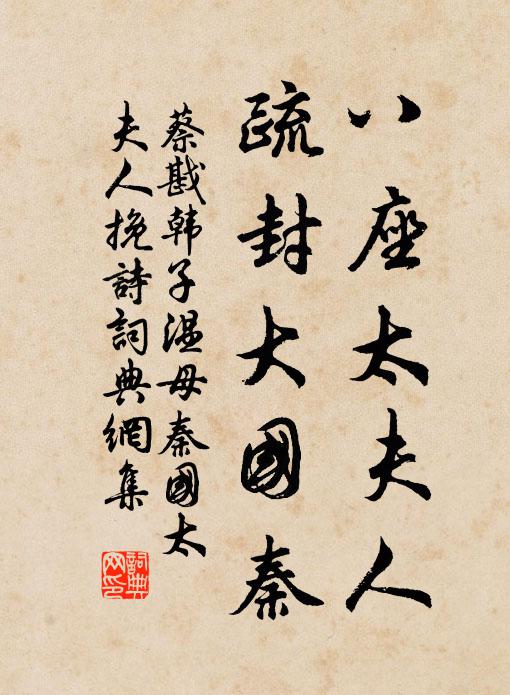 八座太夫人
疏封大國秦
蔡戡韩子温母秦國太
夫人挽詩詞典網集
詞典
网印